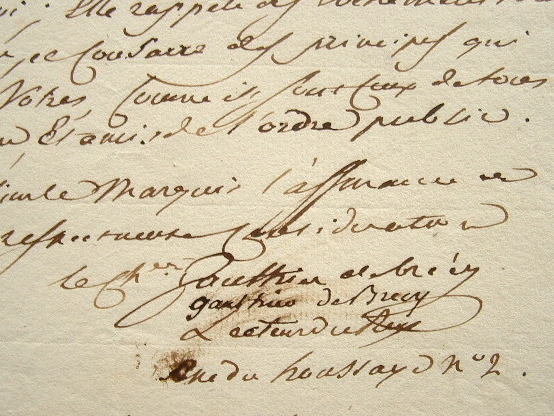 Elle rappelle des
et consacre des principes qui
Votres, Comme ils sont ceux de tous
Et amis de l'ordre public.
le Marquis l'assurance de
respectueuse Consideration
le Ch.er Gauthier de brécy
gauthier de Brecy
Lecteur du
Rue du houssaye n° 2.